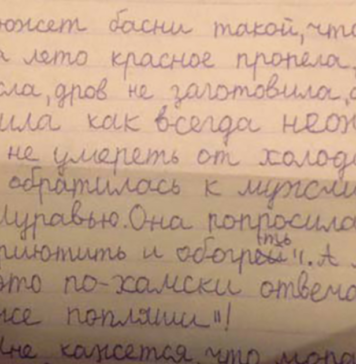 южет басни такой, что
а лето красное пропела,
сла, дров не заготовила, а
ила как всегда неож
не умереть от холода
обратилась к мужи
Муравью. Она попросила
риютить и обогреть". А
это по-хамски отвеча
же попляши"!
Мне кажется, что мора